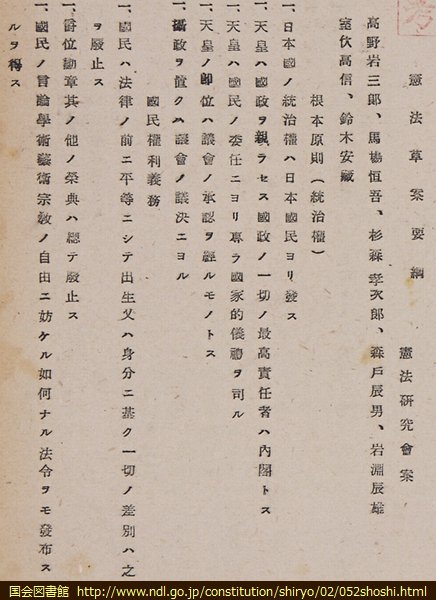 憲法草案要綱
憲法硏究會案
高野岩三郎、馬場恒吾、杉森孝次郎、森戶辰男、岩淵辰雄
室伏高信、鈴木安藏
根本原則(統治權)
一、日本國ノ統治權ハ日本國民ヨリ發ス
一、天皇ハ國政ヲ親ラセス國政ノ一切ノ最高責任者ハ內閣トス
一、天皇ハ國民ノ委任ニヨリ專ラ國家的儀禮ヲ司ル
一、天皇ノ卽位ハ議會ノ承認ヲ經ルモノトス
一、攝政ヲ置クハ議會ノ議決ニヨル
國民權利義務
一、國民ハ法律ノ前ニ平等ニシテ出生又ハ身分ニ基ク一切ノ差別ハ之
ヲ廢止ス
一、爵位勳章其ノ他ノ榮典ハ總テ廢止ス
一、國民ノ言論學術藝術宗敎ノ自由ニ妨ケル如何ナル法令ヲモ發布ス
ルヲ得ス
国会図書館 http://www.ndl.go.jp/constitution/shiryo/02/052shoshi.html